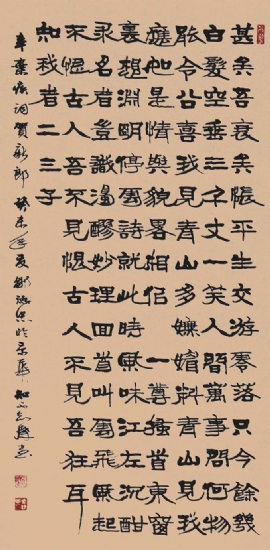 甚矣吾衰矣悵平生交游零落只今餘幾
白髮空垂三千丈一笑人間萬事問何物
能令公喜我見青山多嫵媚料青山見我
應如是情與貌略相佀一尊搔首東窗
裏想淵明停雲詩就此時風味江左沉酣
求名者豈識濁醪妙理回首叫雲飛風起
不恨古人吾不見恨古人不見吾狂耳
知我者二三子
辛棄疾詞賀新郎癸未年夏於京華